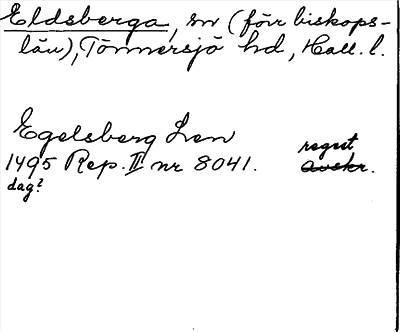 Eldsberga, sn (förr biskops-
län), Tönnersjö hd, Hall. l.
Egelsberg Len
1495 Rep. II nr 8041. regest avskr.
dag?